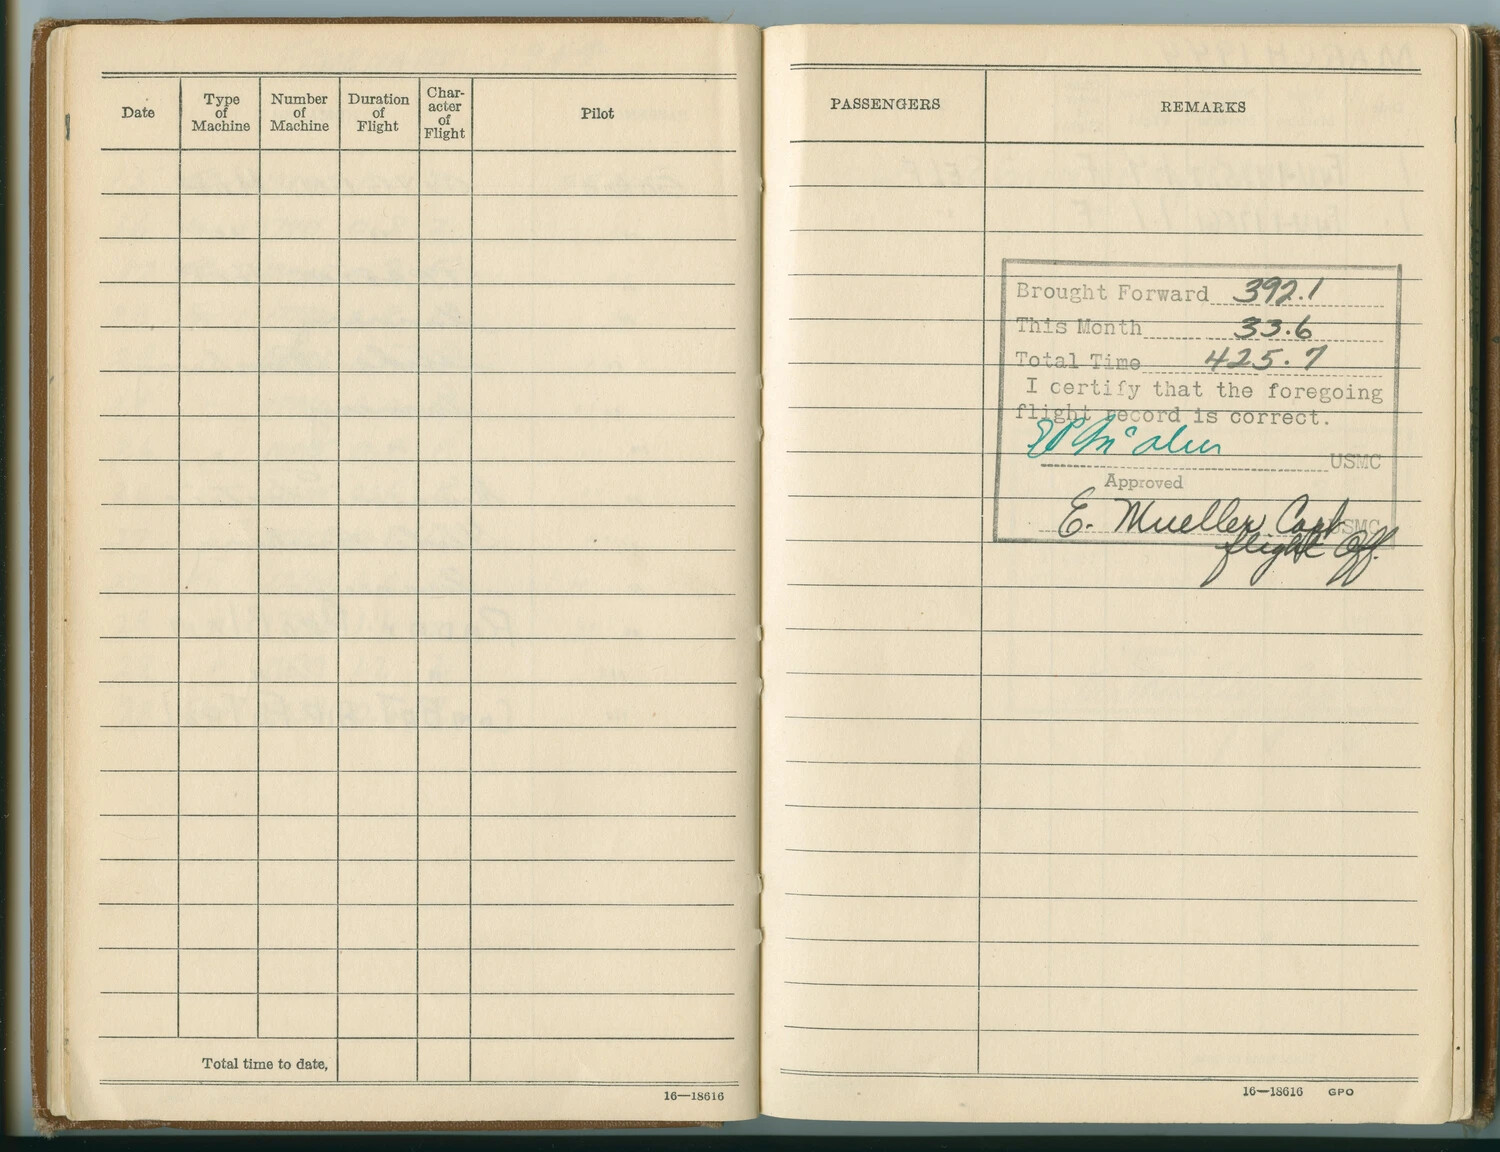 Date
Type of Machine
Number of Machine
Duration of Flight
Char- acter of Flight
Pilot
Total time to date,
16—18616
PASSENGERS
REMARKS
Brought Forward 392.1
This Month 33.6
Total Time 425.7
I certify that the foregoing
flight record is correct.
USMC
Approved
E. Mueller Capt USMC
flight Off.
16—18616 GPO